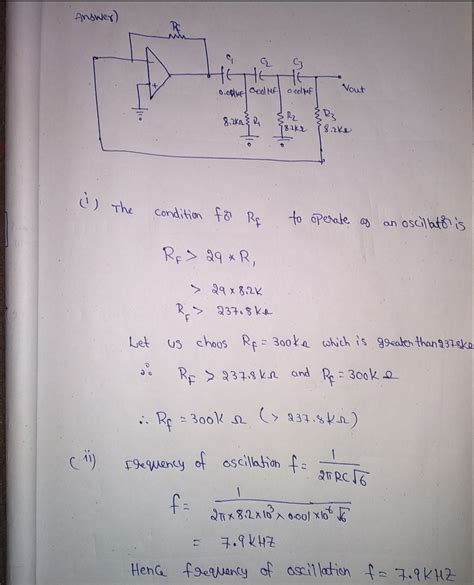 Answer)
Rf
C1 C2 C3
0.001MF 0.001MF 0.001MF
Vout
8.2kΩ R1
R2
8.2kΩ
R3
8.2kΩ
(i) The condition for Rf to operate as an oscillator is
RF > 29 * R1
> 29 x 8.2k
Rf > 237.8kΩ
Let us choos RF = 300kΩ which is greater than 237.8kΩ
∴ RF > 237.8kΩ and RF = 300kΩ
∴ Rf = 300kΩ (> 237.8kΩ)
(ii) Frequency of oscillation f = 1 / 2πRC√6
f = 1 / 2π x 8.2 x 10³ x 0.001 x 10⁻⁶ √6
= 7.9kHZ
Hence frequency of oscillation f = 7.9KHZ